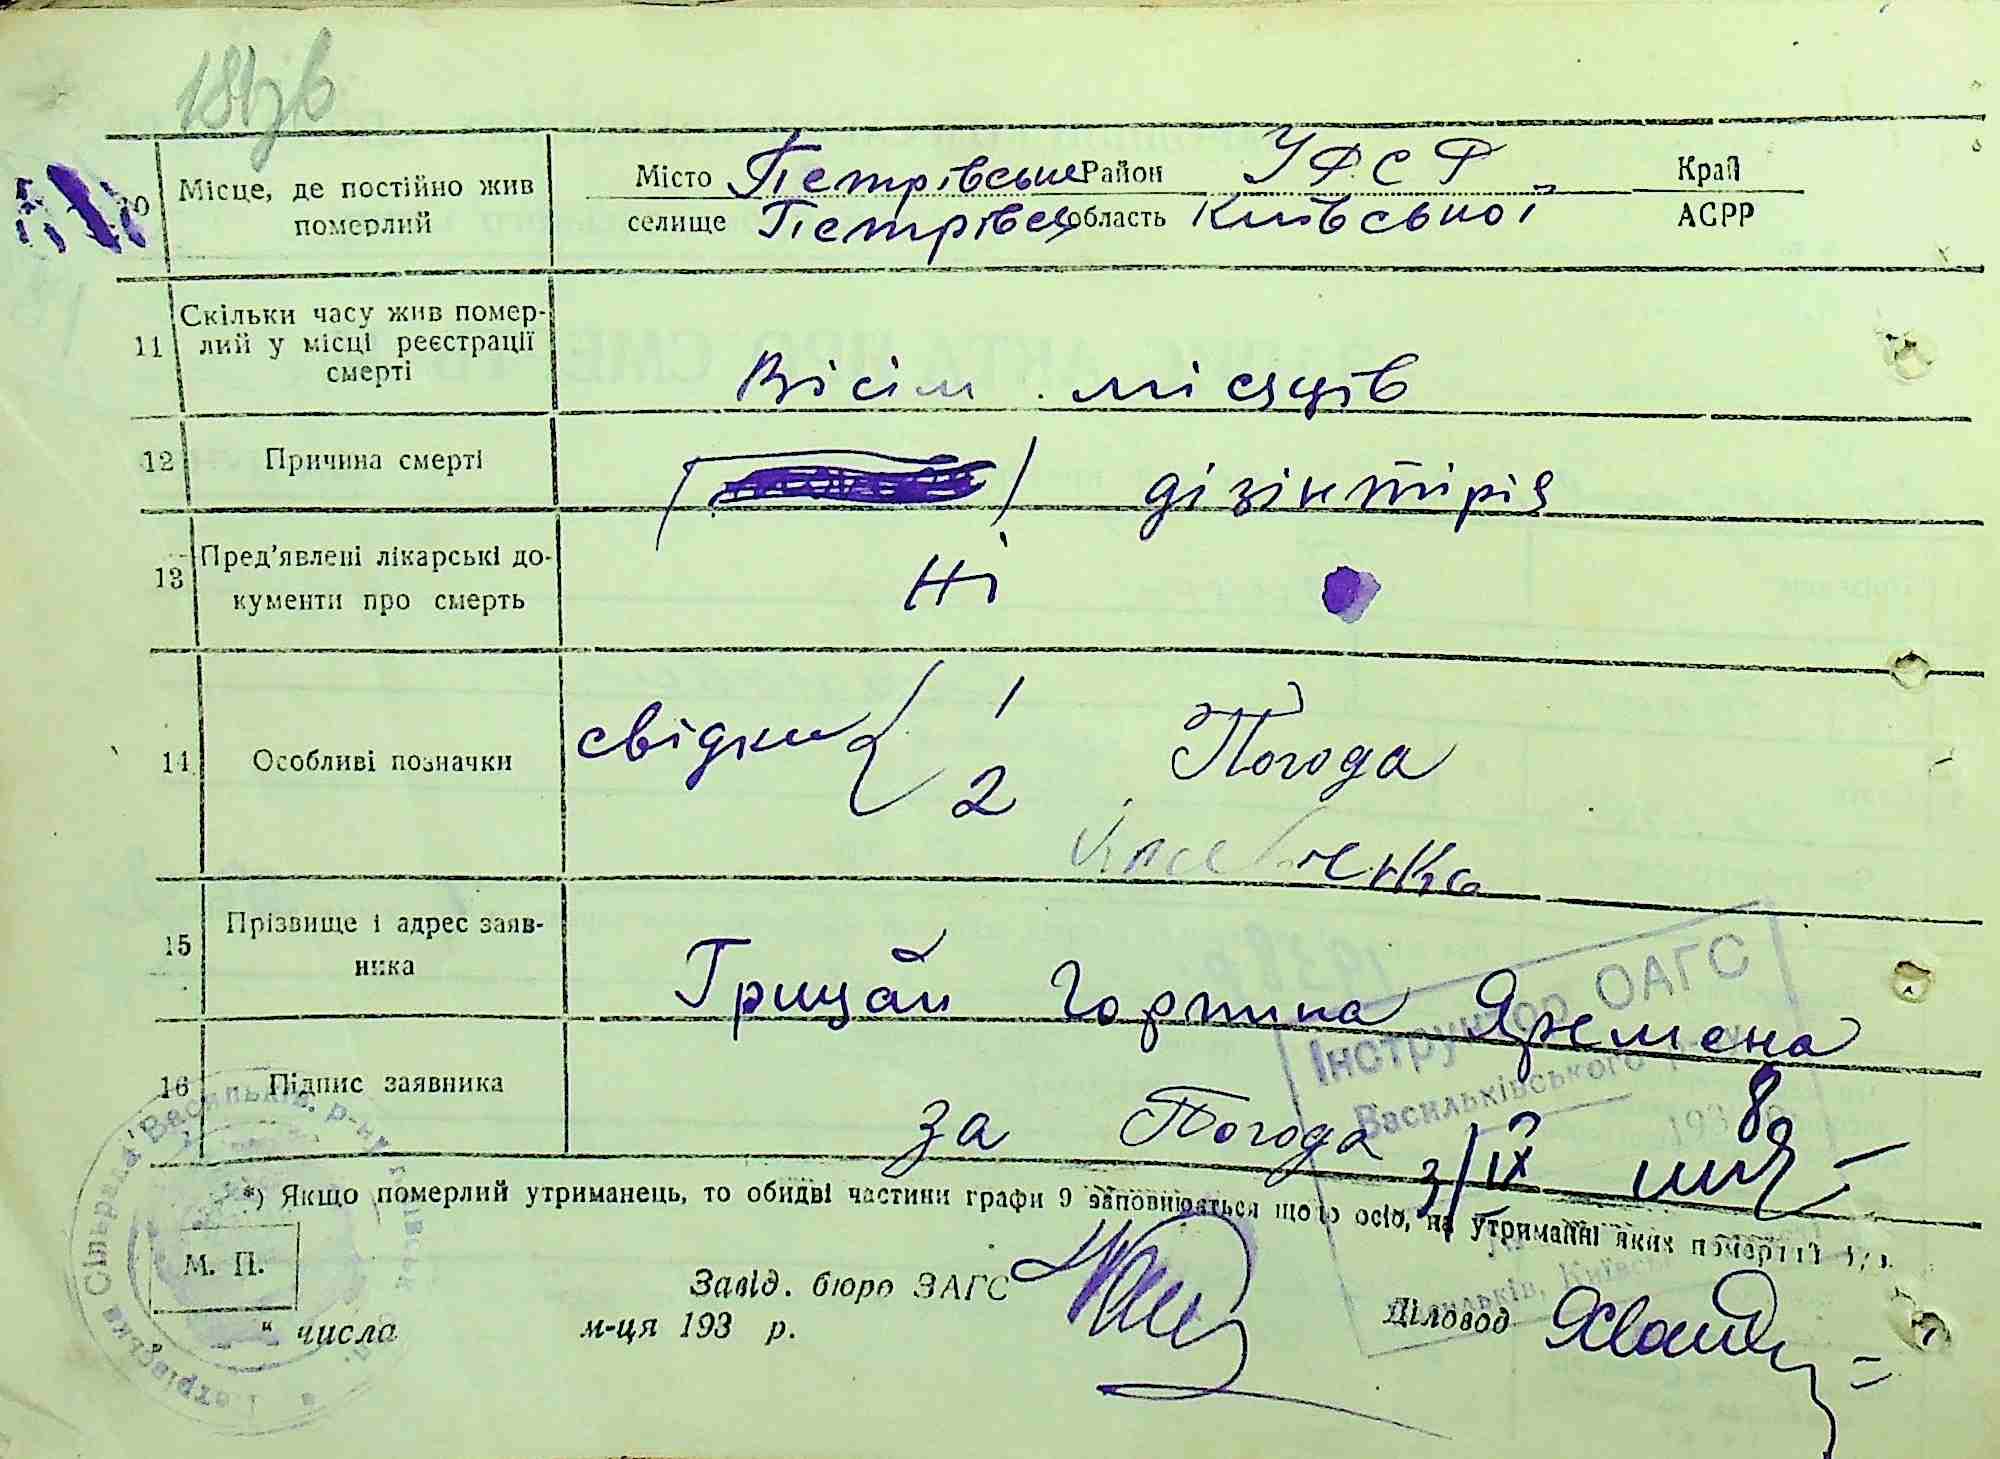 10 Місце, де постійно жив померлий
Місто Петрівське Район УРСР Край
селище Петрівка область Київської АСРР
11 Скільки часу жив помер-
лий у місці реєстрації
смерті
Вісім місяців
12 Причина смерті
дізінтірія
13 Пред'явлені лікарські до-
кументи про смерть
Ні
14 Особливі позначки
свідки { 1 Погода
2
15 Прізвище і адрес заяв-
ника
Грицай Горпина Яремена
16 Підпис заявника
за Погода
3/IX
*) Якщо померлий утриманець, то обидві частини графи 9 заповнюються щодо осіб, на утриманні яких померлий був.
М. П.
Завід. бюро ЗАГС
Діловод
" числа м-ця 193 р.
Інструктор ОАГС
Васильківського
193 8
Васильків, Київськ
Петрівська Сільрада Васильків. р-ну Київськ